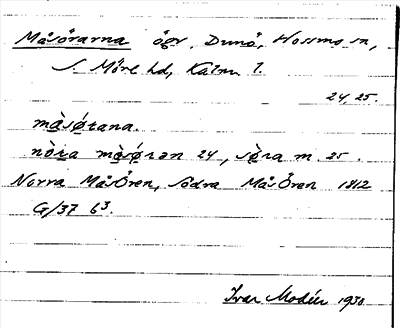 Måsörarna ögr, Dunö, Hossmo sn,
S. Möre hd, Kalm l.
24, 25.
mɑ̀sǿrana.
nòra mɑ̀sǿran 24, sǿra m. 25.
Norra MåsÖren, Södra MåsÖren 1812
G/37 63.
Ivar Modéer 1930